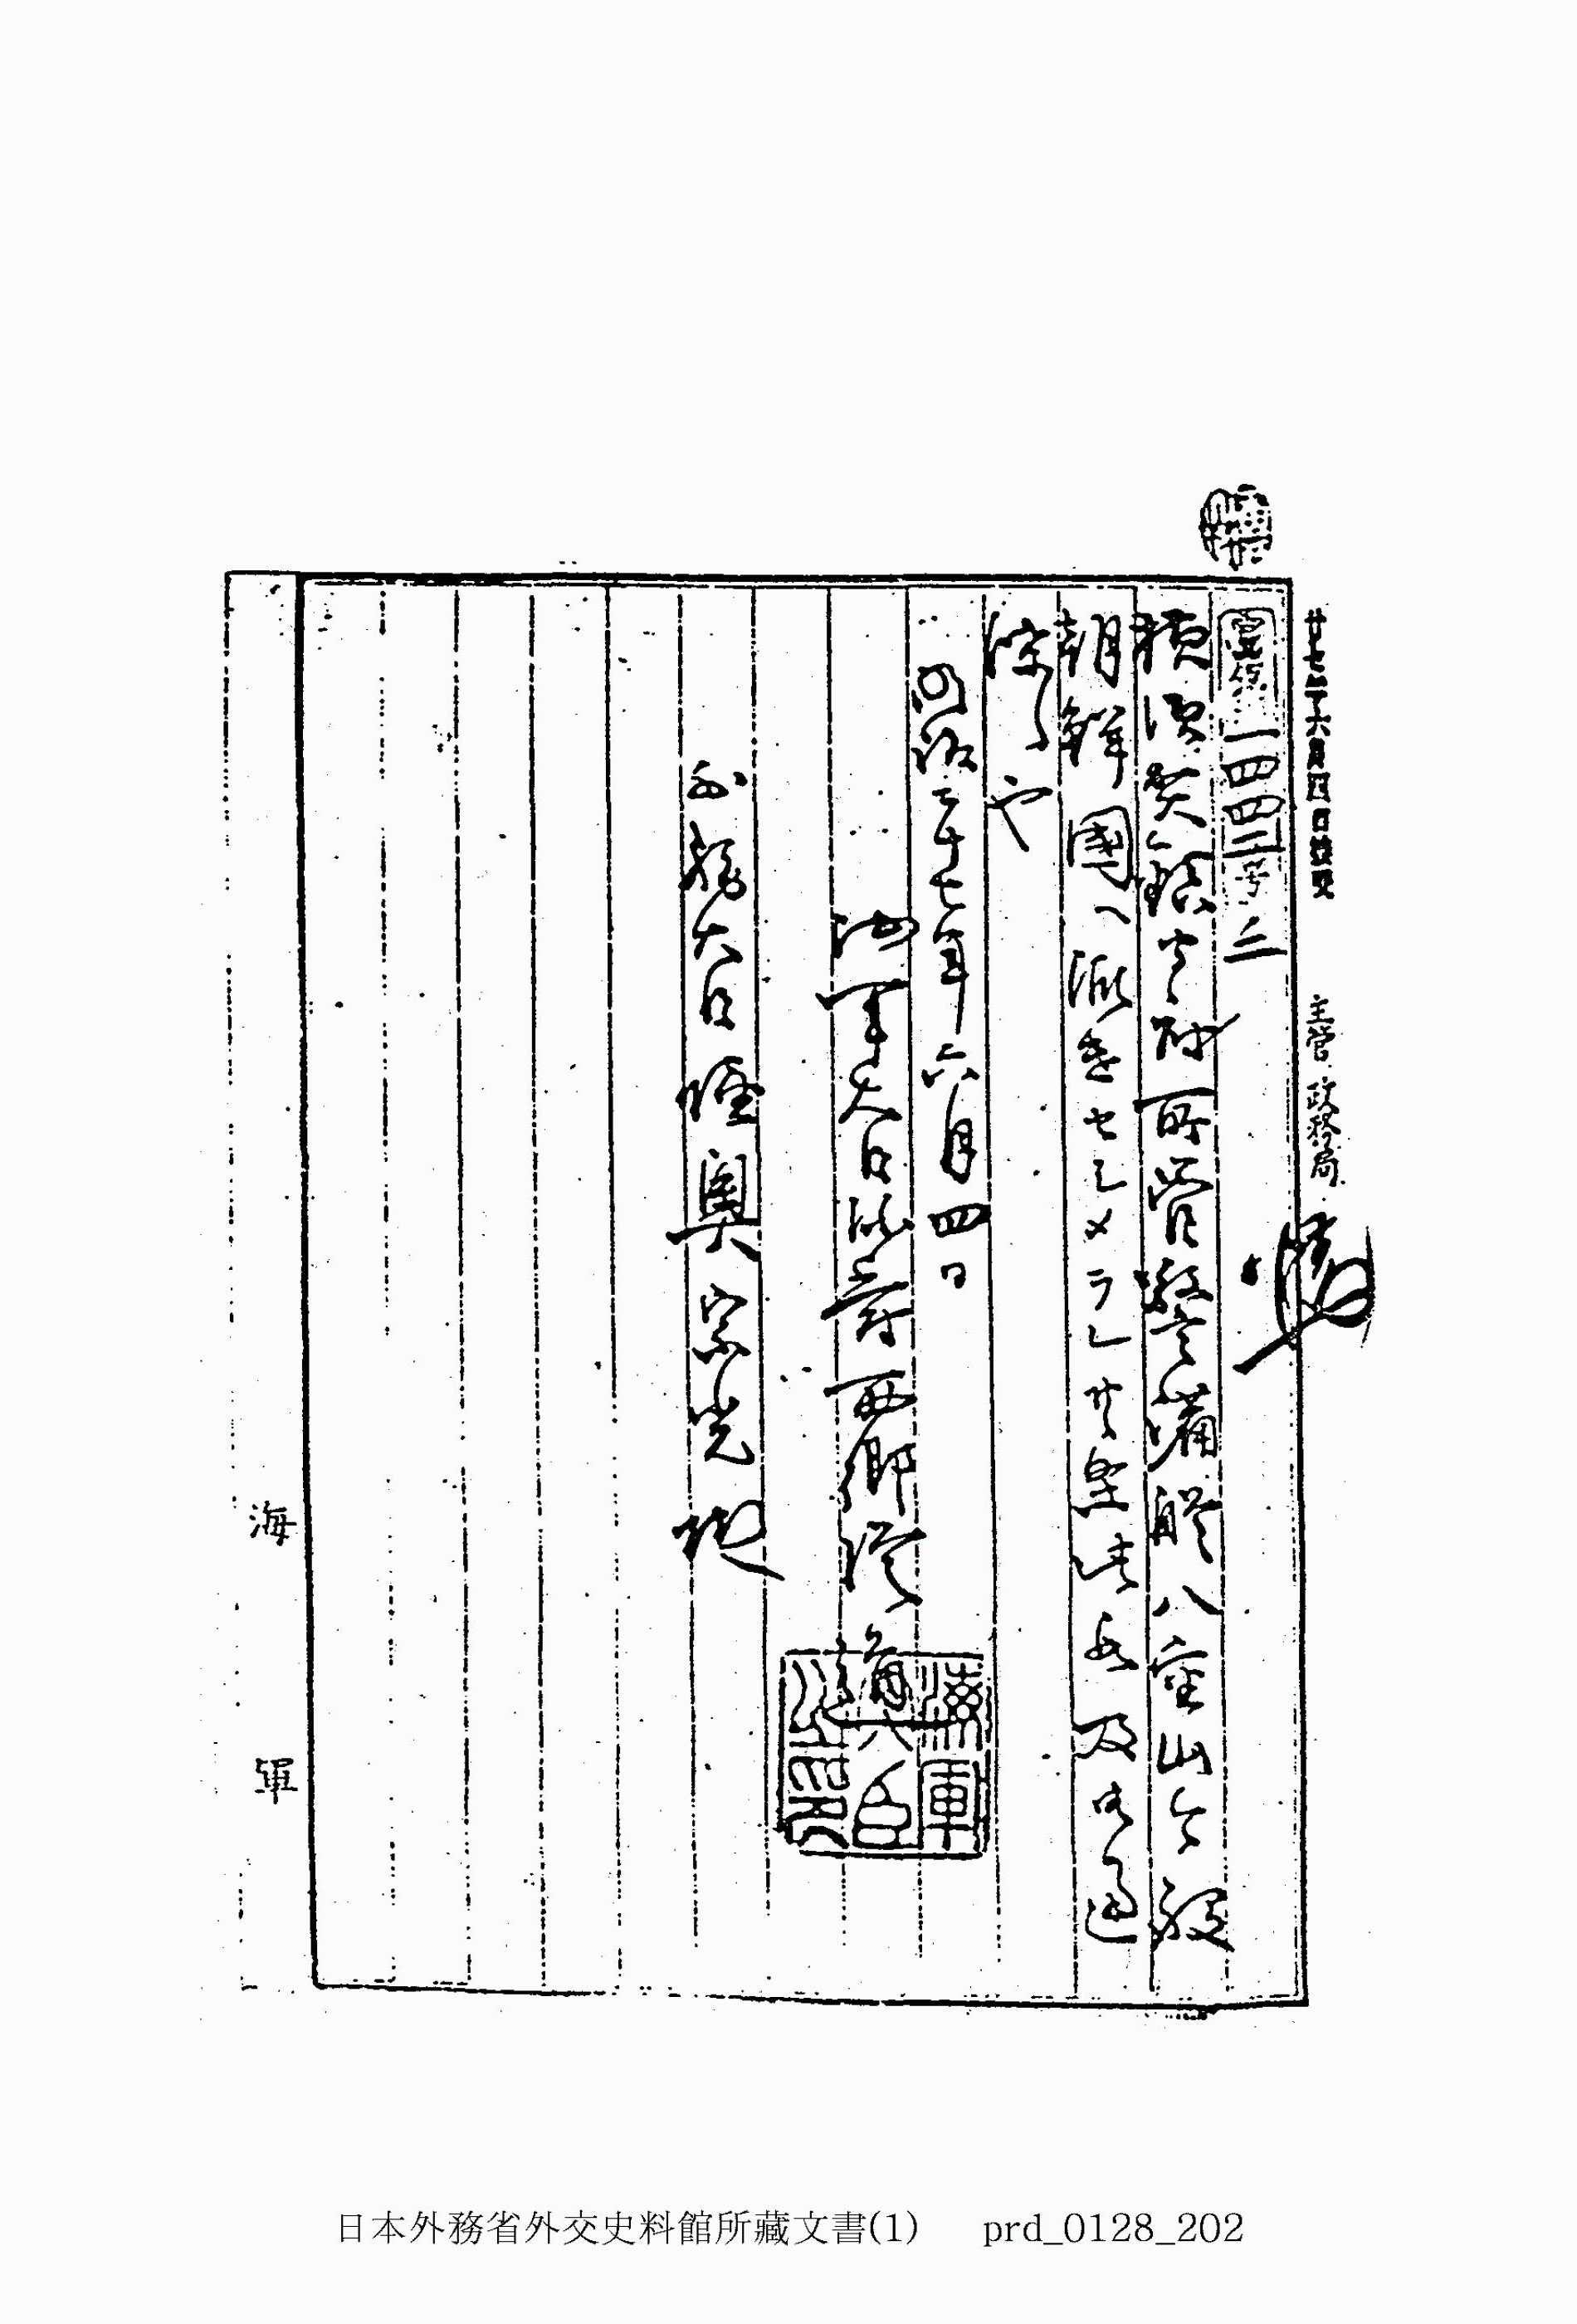 廿七年六月四日接受
主管 政務局
一四四二号ノ三
横須賀鎮守府所管警備艦八重山今般
朝鮮國ヘ派遣セシメラレ
明治二十七年六月四日
海軍大臣伯爵西郷從道
海軍大臣之印
外務大臣陸奥宗光殿
海軍
日本外務省外交史料館所藏文書(1) prd_0128_202